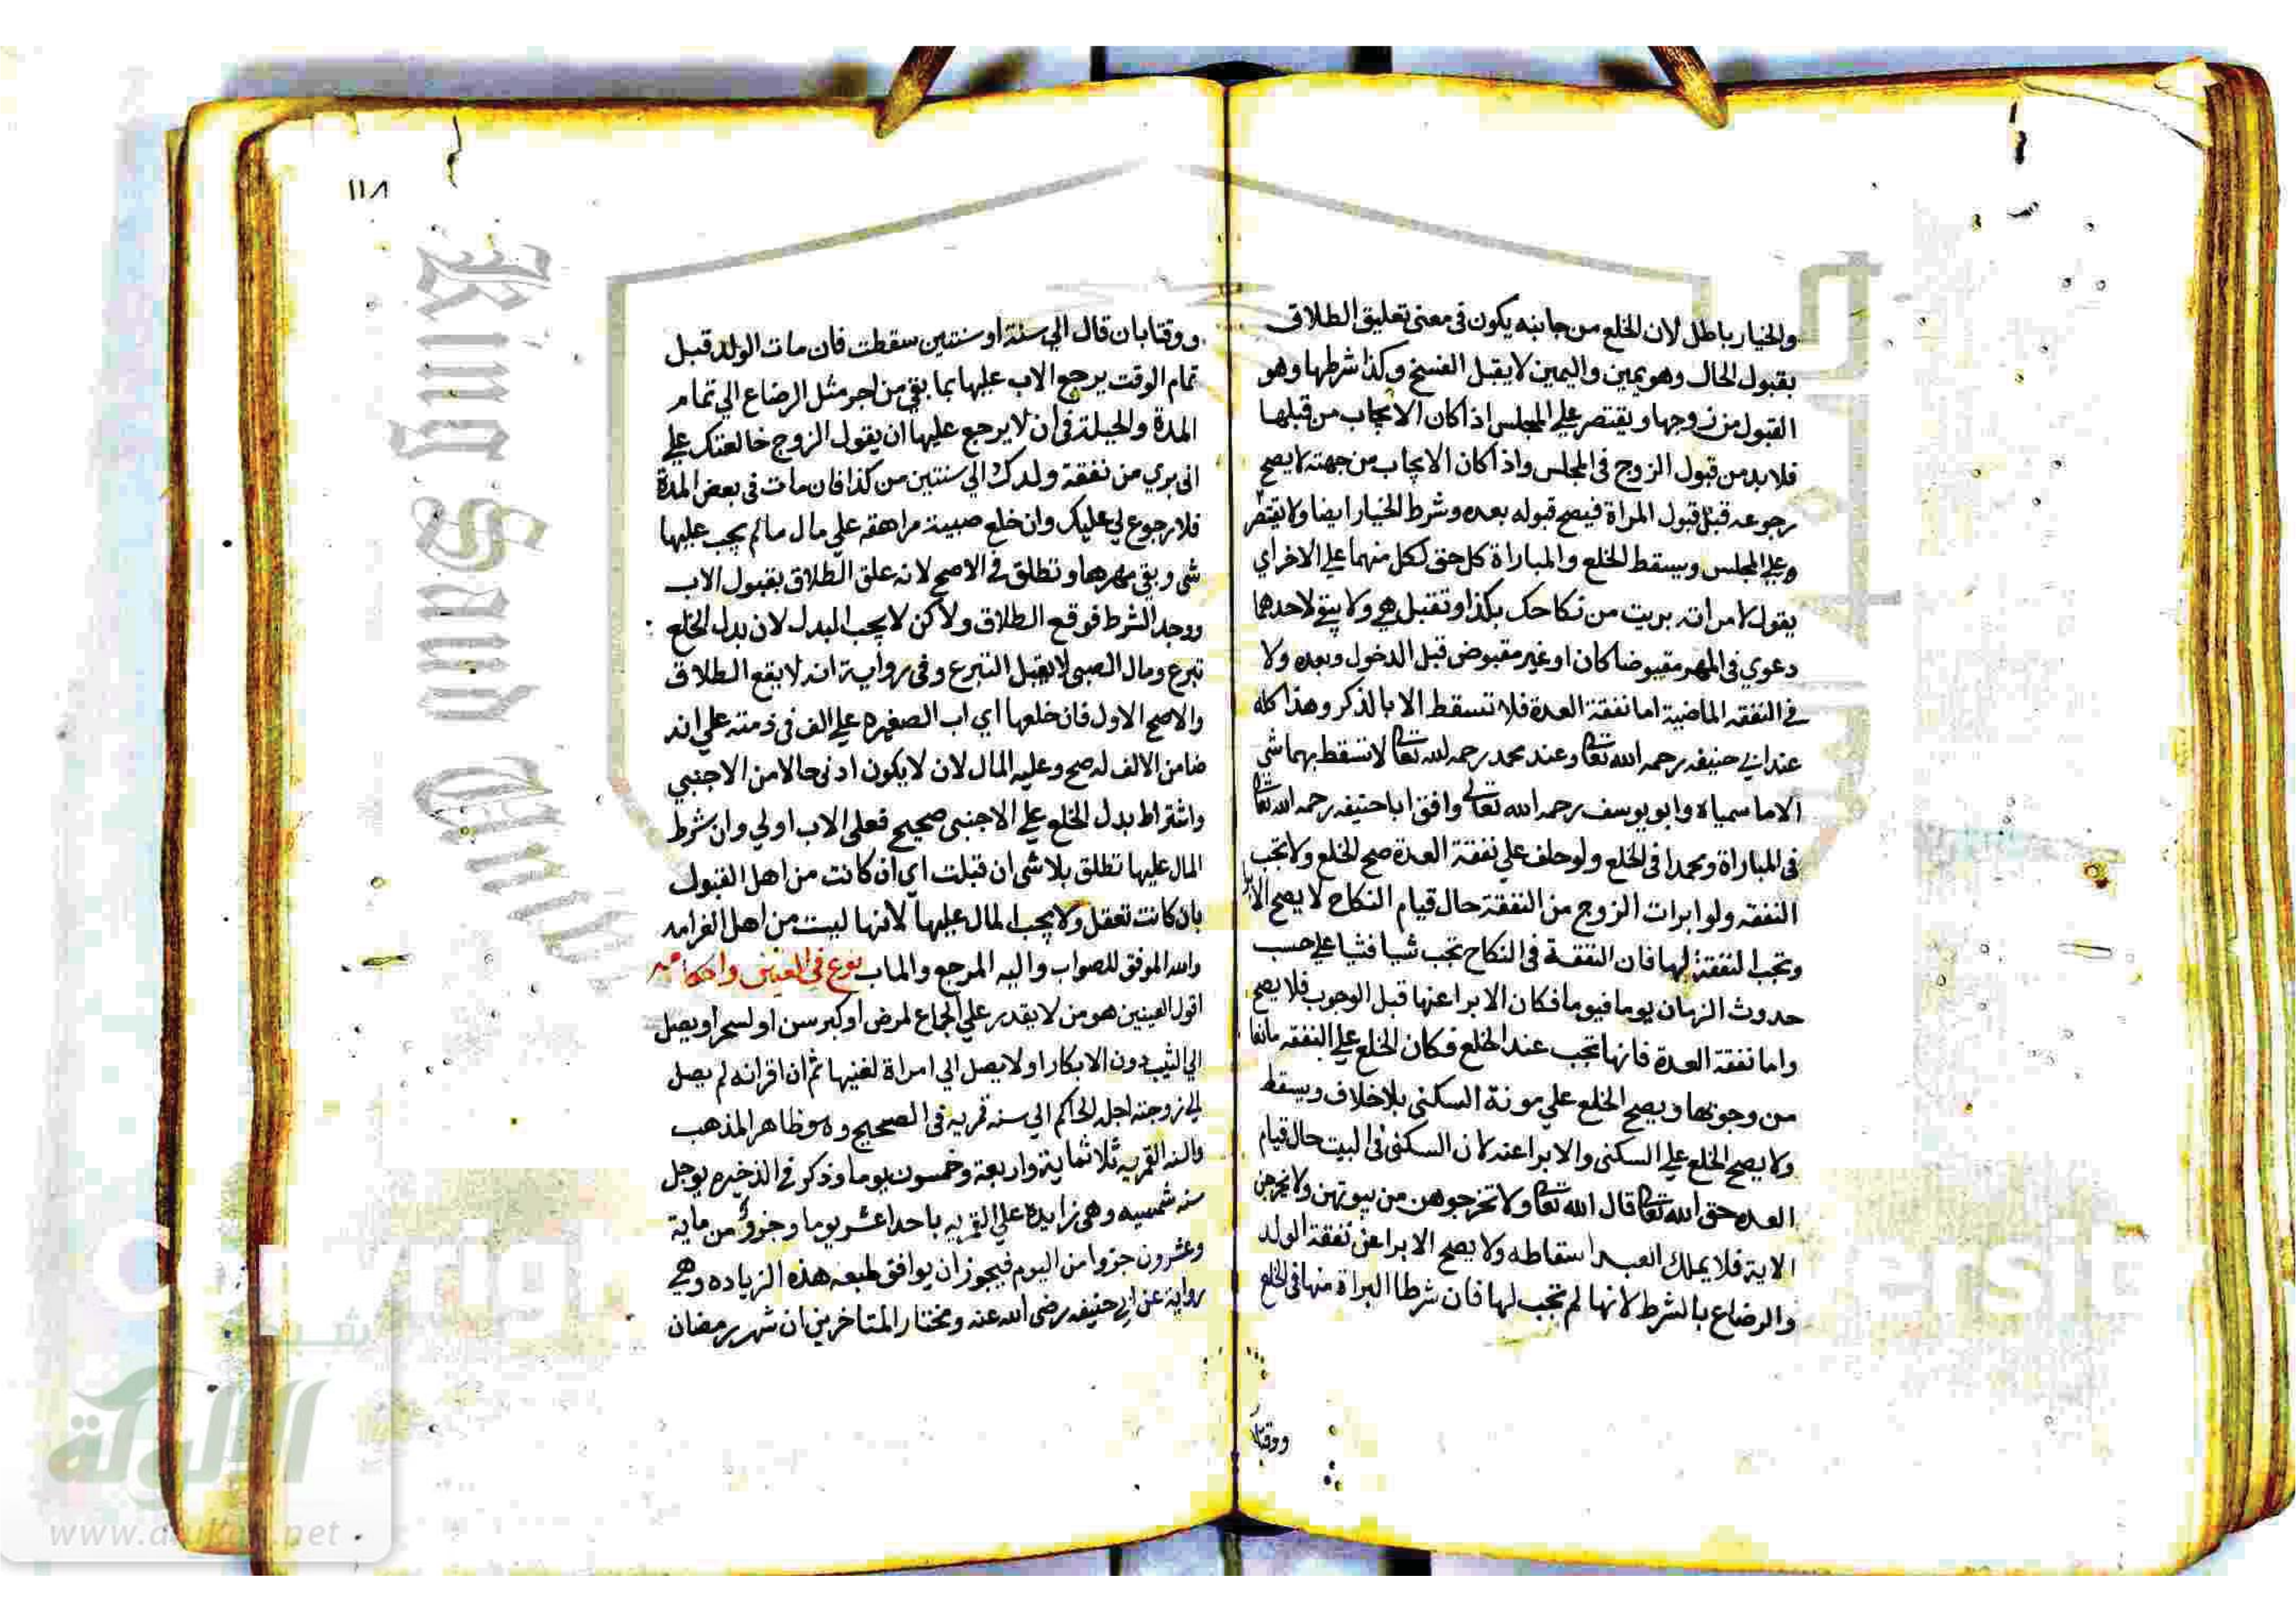 والخيار باطل لان الخلع من جانبه يكون فى معنى تعليق الطلاق
بقبول المال وهو يمين واليمين لا يقبل الفسخ وكذا شرطها وهو
القبول من زوجها ويقتصر علي المجلس اذا كان الايجاب من قبلها
فلا بد من قبول الزوج فى المجلس واذا كان الايجاب من جهته لا يصح
رجوعه قبل قبول المراة فيصح قبوله بعده وشرط الخيار ايضا ولا يقتصر
وعلي المجلس ويسقط الخلع والمباراة كل حق لكل منهما علي الاخر اي
يقول لامراته بريت من نكاحك بكذا وتقبل هي ولا يبقي لاحدهما
دعوي فى المهر مقبوضا كان او غير مقبوض قبل الدخول وبعده ولا
في النفقه الماضية اما نفقة العدة فلا تسقط الا بالذكر وهذا كله
عند ابي حنيفه رحمه الله تعالى وعند محمد رحمه الله تعالى لا تسقط بهما شى
الا ما سمياه وابو يوسف رحمه الله تعالى وافق ابا حنيفه رحمه الله تعالى
فى المباراة ومحمدا فى الخلع ولو حلف علي نفقة العدة صح الخلع ولا تجب
النفقه ولو ابرات الزوج من النفقة حال قيام النكاح لا يصح الابرا
وتجب النفقة لها فان النفقة فى النكاح تجب شيا فشيا علي حسب
حدوث الزمان يوما فيوما فكان الابرا عنها قبل الوجوب فلا يصح
واما نفقة العدة فانها تجب عند الخلع فكان الخلع علي النفقه مانعا
من وجوبها ويصح الخلع علي مونة السكنى بلا خلاف ويسقط
ولا يصح الخلع علي السكنى والابرا عنه لان السكنى فى البيت حال قيام
العده حق الله تعالى قال الله تعالى ولا تخرجوهن من بيوتهن ولا يخرجن
الاية فلا يملك العبد اسقاطه ولا يصح الابرا عن نفقة الولد
والرضاع بالشرط لانها لم تجب لها فان شرطا البراة منها فى الخلع
ووقتا
١١٨
ووقتا بان قال الي سنة او سنتين سقطت فان مات الولد قبل
تمام الوقت يرجع الاب عليها بما بقي من اجر مثل الرضاع الي تمام
المدة والحيلة فى ان لا يرجع عليها ان يقول الزوج خالعتك علي
انى بري من نفقة ولدك الي سنتين من كذا فان مات فى بعض المدة
فلا رجوع لي عليك وان خلع صبية مراهقه علي مال مالم يجب عليها
شى وبقي مهرها وتطلق في الاصح لانه علق الطلاق بقبول الاب
ووجد الشرط فوقع الطلاق ولاكن لا يجب البدل لان بدل الخلع
تبرع ومال الصبى لا يقبل التبرع وفى رواية انه لا يقع الطلاق
والاصح الاول فان خلعها اي اب الصغيره علي الف فى ذمته علي انه
ضامن الالف له صح وعليه المال لان لا يكون ادنى حالا من الاجنبي
واشتراط بدل الخلع علي الاجنبى صحيح فعلى الاب اولي وان شرط
المال عليها تطلق بلا شى ان قبلت اي ان كانت من اهل القبول
بان كانت تعقل ولا يجب المال عليها لانها ليست من اهل الغرامه
والله الموفق للصواب واليه المرجع والماب نوع فى العنين واحكامه
اقول العينين هو من لا يقدر علي الجماع لمرض او كبر سن او لسحر او يصل
الي الثيب دون الابكار او لا يصل الي امراة لغنيها ثم ان اقر انه لم يصل
الي زوجته اجله الحاكم الي سنه قمريه فى الصحيح وهو ظاهر المذهب
والسنه القمريه ثلاثماية واربعة وخمسون يوما وذكر فى الذخيره يوجل
سنه شمسيه وهى زايدة علي القمريه باحد عشر يوما وجزو من ماية
وعشرون جزوا من اليوم فيجوز ان يوافق طبعه هذه الزياده وهي
رواية عن ابي حنيفه رضى الله عنه ومختار المتاخرين ان شهر رمضان
King Saud Univ
شبكة
الألوكة
www.alukah.net